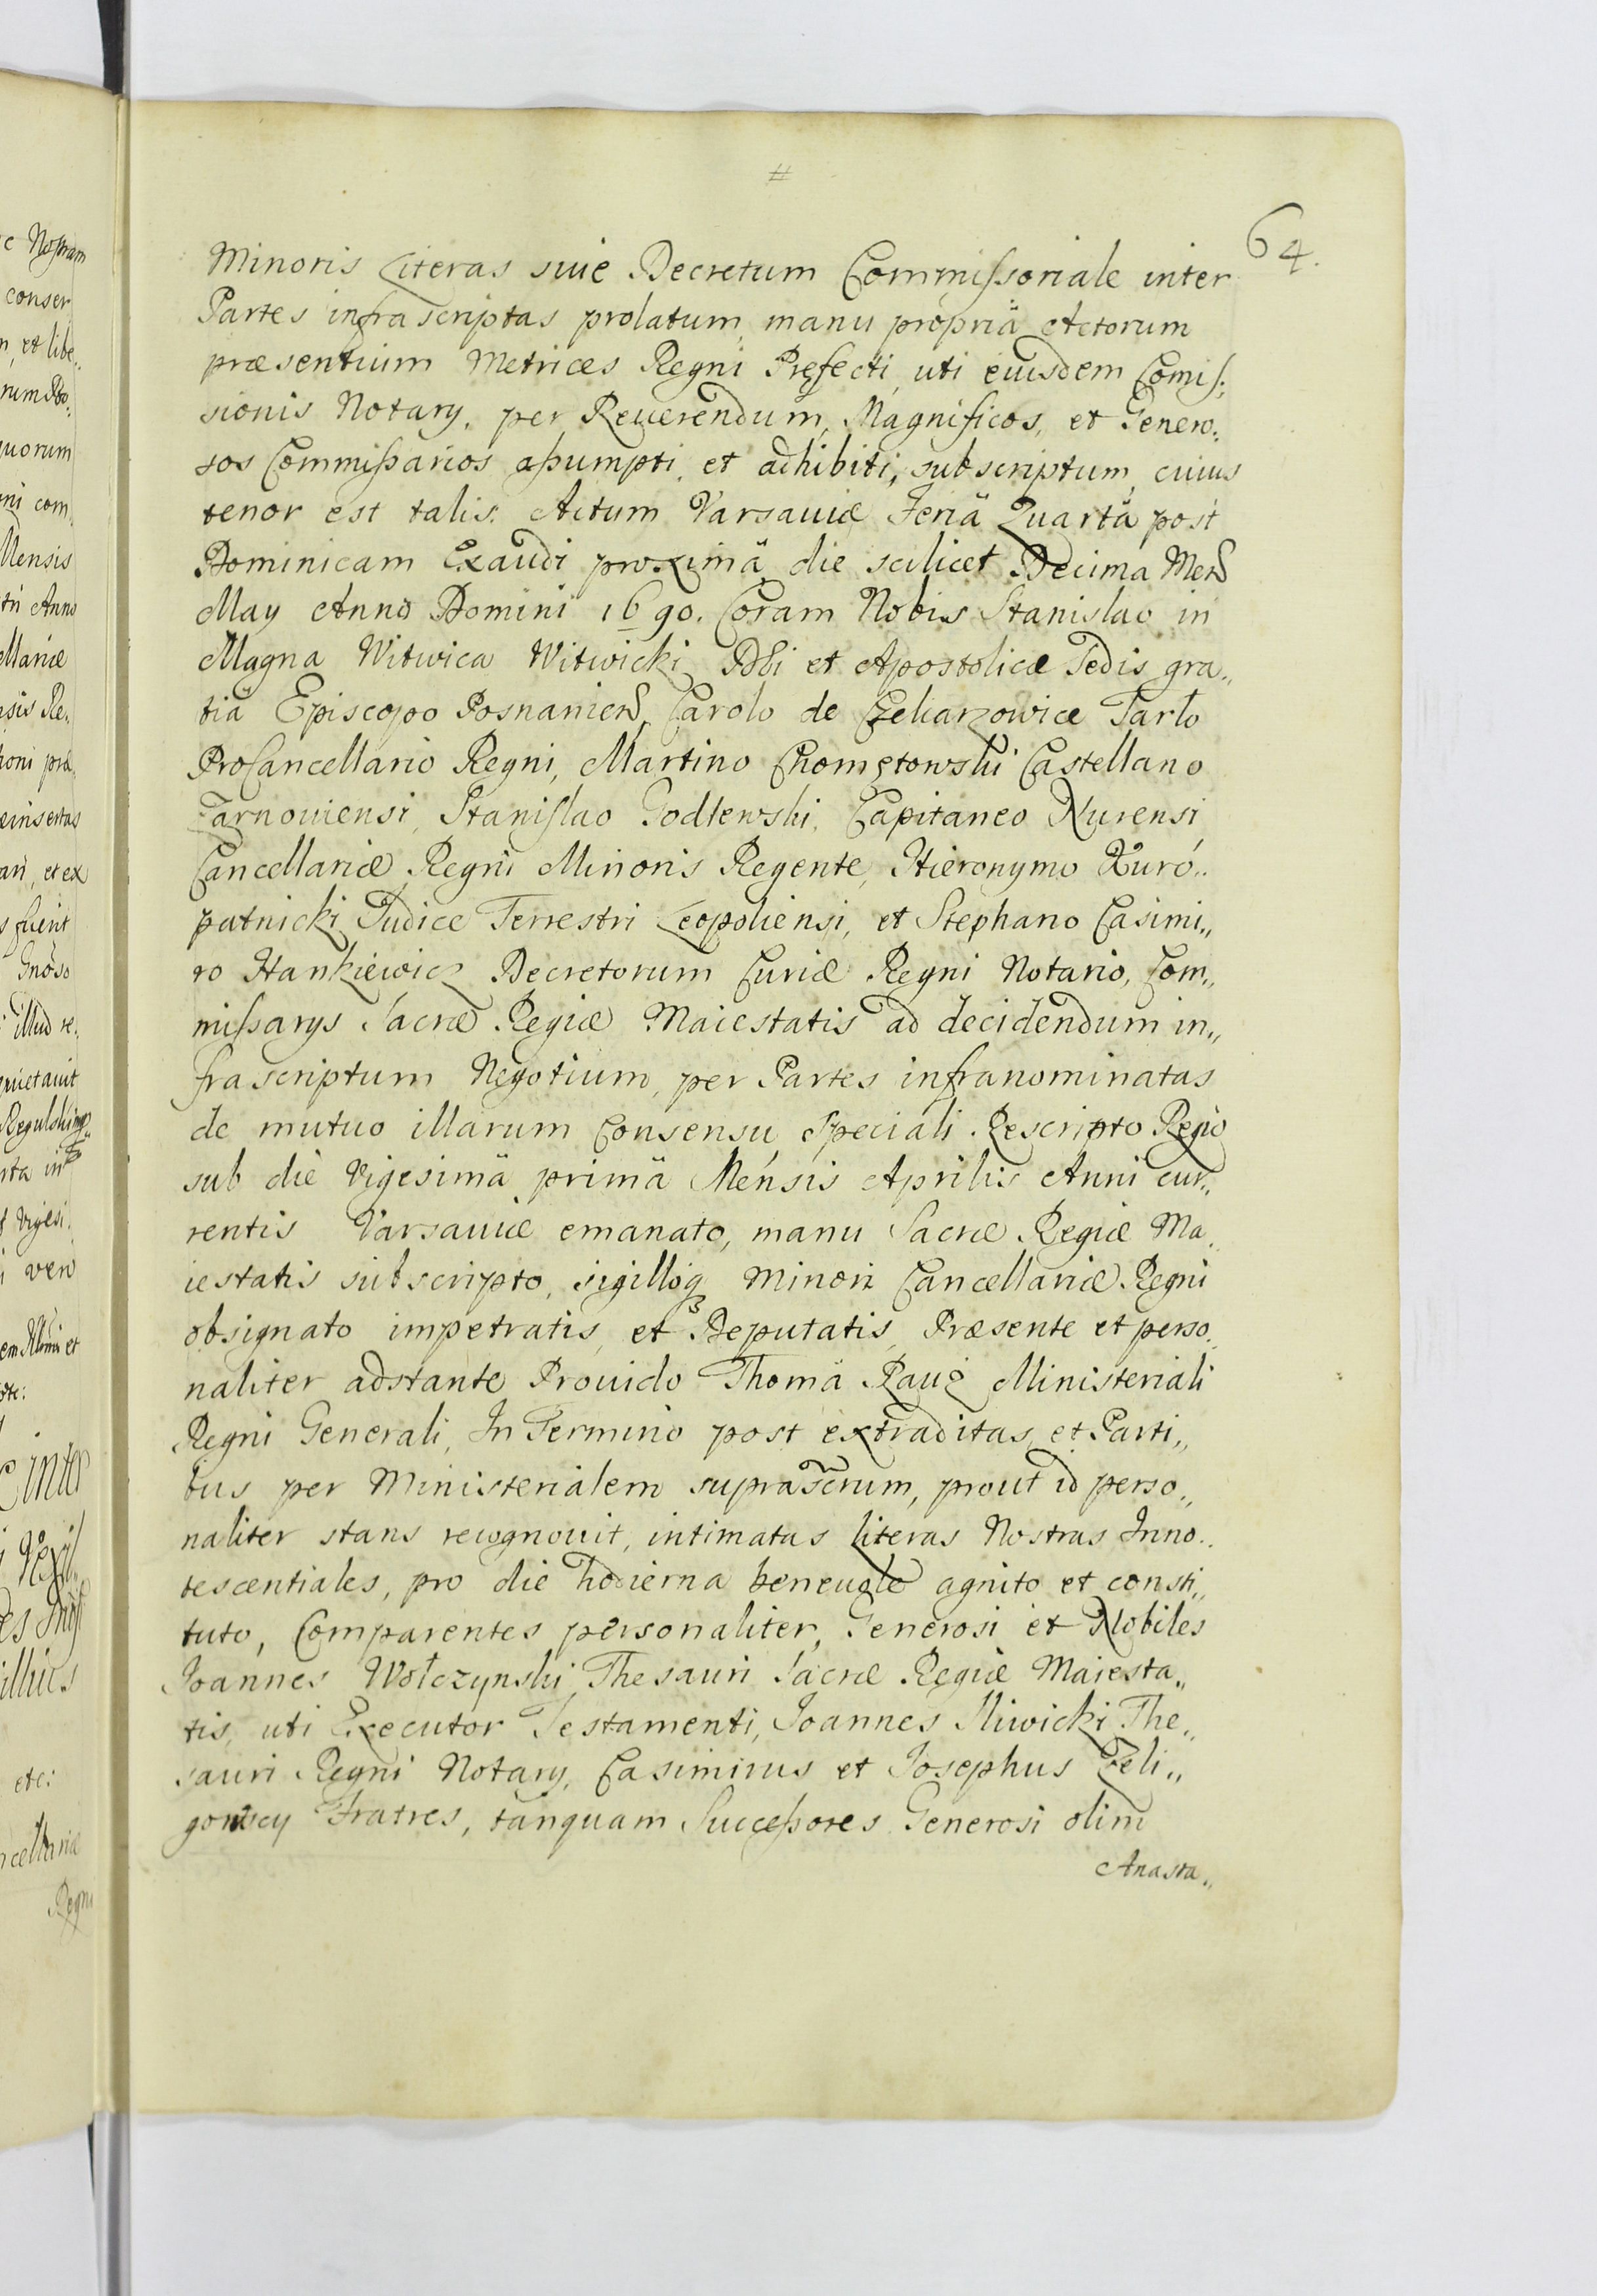 64.
Minoris Literas siue Decretum Commissoriale inter
Partes infrascriptas prolatum, manu propriâ Actorum
præsentium Metrices Regni Pręfecti, uti eiusdem Comis:
sionis Notarÿ, per Reuerendum, Magnificos, et Genero:
sos Commißarios aßumpti, et adhibiti, subscriptum, cuius
tenor est talis. Actum Varsauiæ Feriâ Quartâ post
Dominicam Exaudi proximâ, die scilicet Decima Mens
May Anno Domini 1690. Coram Nobis Stanislao in
Magna Witwica Witwicki, Dei et Apostolicæ Sedis gra„
tiâ Episcopo Posnaniens, Carolo de Czekarzowice Tarło
ProCancellario Regni, Martino Chomętowski Castellano
Zarnouiensi, Stanislao Godlewski, Capitaneo Nurensi,
Cancellariæ Regni Minoris Regente, Hieronymo Żuró„
patnicki Judice Terrestri Leopoliensi, et Stephano Casimi„
ro Hankiewicz Decretorum Curiæ Regni Notario, Com„
mißarÿs Sacræ Regiæ Maiestatis ad decidendum in„
frascriptum Negotium, per Partes infranominatas
de mutuo illarum Consensu, Speciali Rescripto Regio
sub die Vigesimâ primâ Mensis Aprilis Anni cur„
rentis Varsauiæ emanato, manu Sacræ Regiæ Ma„
iestatis subscripto, sigilloq3 Minori Cancellariæ Regni
obsignato impetratis, et Deputatis, Præsente et perso„
naliter adstante Prouido Thomâ Rauz Ministeriali
Regni Generali, In Termino post extraditas, et Parti„
bus per Ministerialem suprascrum, prout id perso„
naliter stans recognouit, intimatas literas Nostras Inno„
tescentiales, pro die hodierna beneuole agnito et consti„
tuto, Comparentes personaliter, Generosi et Nobiles
Joannes Wołczynski Thesauri Sacræ Regiæ Maiesta„
tis, uti Executor Testamenti, Joannes Sliwicki The„
sauri Regni Notarÿ, Casimirus et Josephus Zeli„
gowscy Fratres, tanquam Succeßores Generosi olim
Anasta„